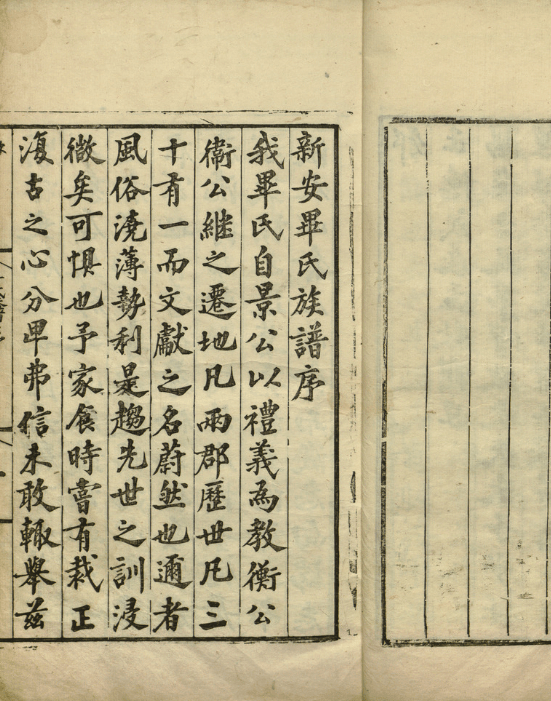 新安畢氏族譜序
我畢氏自景公以禮義為教衡公
衛公継之遷地凡兩郡歷世凡三
十有一而文獻之名蔚然也邇者
風俗澆薄勢利是趨先世之訓浸
微矣可惧也予家食時嘗有裁正
復古之心分卑弗信未敢輙舉茲